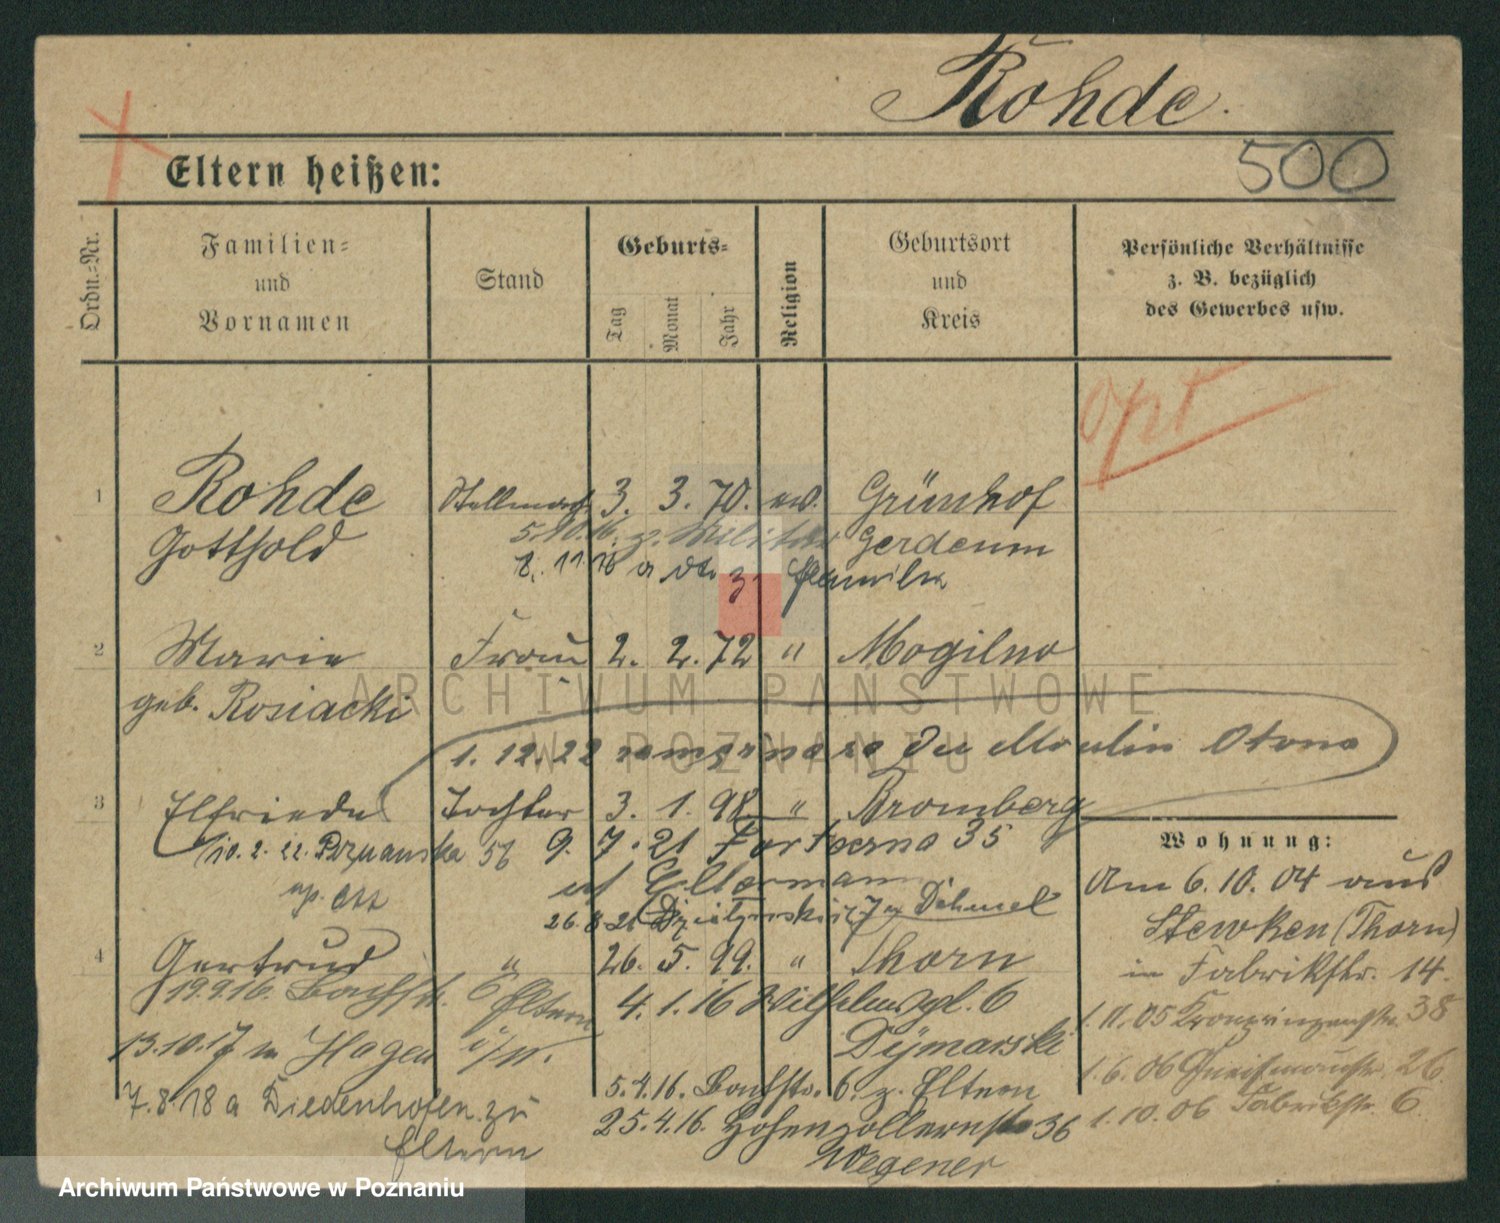 Rohde.
500
Eltern heißen:
Ordn.-Nr.
Familien-
und
Vornamen
Stand
Geburts-
Tag
Monat
Jahr
Religion
Geburtsort
und
Kreis
Persönliche Verhältnisse
z. B. bezüglich
des Gewerbes usw.
opt
1 Rohde Stellmach 3. 3. 70. ev. Grünhof
Gotthold
5.10.16. z. Militär Gerdauen
8. 11.16 a dto z. Familie
2 Marie Frau 2. 2. 72 " Mogilno
geb. Rosiacki
1. 12. 22 Du Moulin Otona
3 Elfriede Tochter 3. 1. 98. " Bromberg
10. 2. 22. Poznanska 56 9. 7. 21 Forteczna 35
Wohnung:
26.8.21 Dehmel
Am 6. 10. 04 aus
Stewken (Thorn)
in Fabrikstr. 14.
4 Gertrud " 26. 5. 99. " Thorn
19.9.16. Bachstr. 6 Eltern
4. 1. 16 Wilhelmspl. 6
Dymarski
1. 11. 05 Kronprinzenstr. 38
13.10.17 in Hagen i/W.
1. 6. 06 Gneisenaustr. 26
5.4.16. Bachstr. 6. z. Eltern
7.8.18 a Diedenhofen zu
Eltern
1. 10. 06 Fabrikstr. 6
25.4.16. Hohenzollernstr 36
Wegener
ARCHIWUM PAŃSTWOWE
W POZNANIU
Archiwum Państwowe w Poznaniu